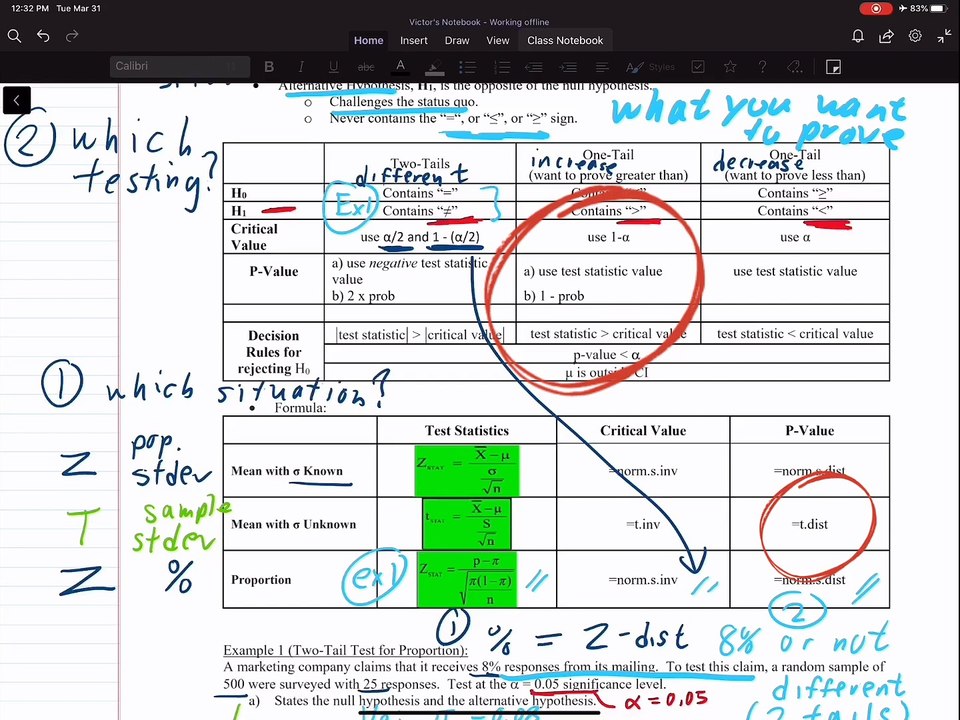 12:32 PM Tue Mar 31
83%
Victor's Notebook - Working offline
Home Insert Draw View Class Notebook
Calibri B I U abc A Styles
Alternative Hypothesis, H1, is the opposite of the null hypothesis.
o Challenges the status quo.
o Never contains the "=", or "≤", or "≥" sign.
what you want
to prove
② which
testing?
Two-Tails
different
increase
One-Tail
(want to prove greater than)
decrease
One-Tail
(want to prove less than)
H0 Ex1 Contains "=" Contains "≥"
H1 Contains "≠" Contains ">" Contains "<"
Critical Value use α/2 and 1 - (α/2) use 1-α use α
P-Value
a) use negative test statistic value
b) 2 x prob
a) use test statistic value
b) 1 - prob
use test statistic value
Decision Rules for rejecting H0
|test statistic| > |critical value| test statistic > critical value test statistic < critical value
p-value < α
μ is outside CI
① which situation?
• Formula:
Test Statistics Critical Value P-Value
Z pop. stdev
Mean with σ Known ZSTAT = X̄ − μ / σ/√n =norm.s.inv =norm.s.dist
T sample stdev
Mean with σ Unknown tSTAT = X̄ − μ / S/√n =t.inv =t.dist
Z %
Proportion ex1 ZSTAT = p − π / √π(1−π)/n =norm.s.inv =norm.s.dist
① % = Z-dist
② 8% or not
Example 1 (Two-Tail Test for Proportion):
A marketing company claims that it receives 8% responses from its mailing. To test this claim, a random sample of
500 were surveyed with 25 responses. Test at the α = 0.05 significance level.
different
a) States the null hypothesis and the alternative hypothesis.
α = 0.05
(2 tails)